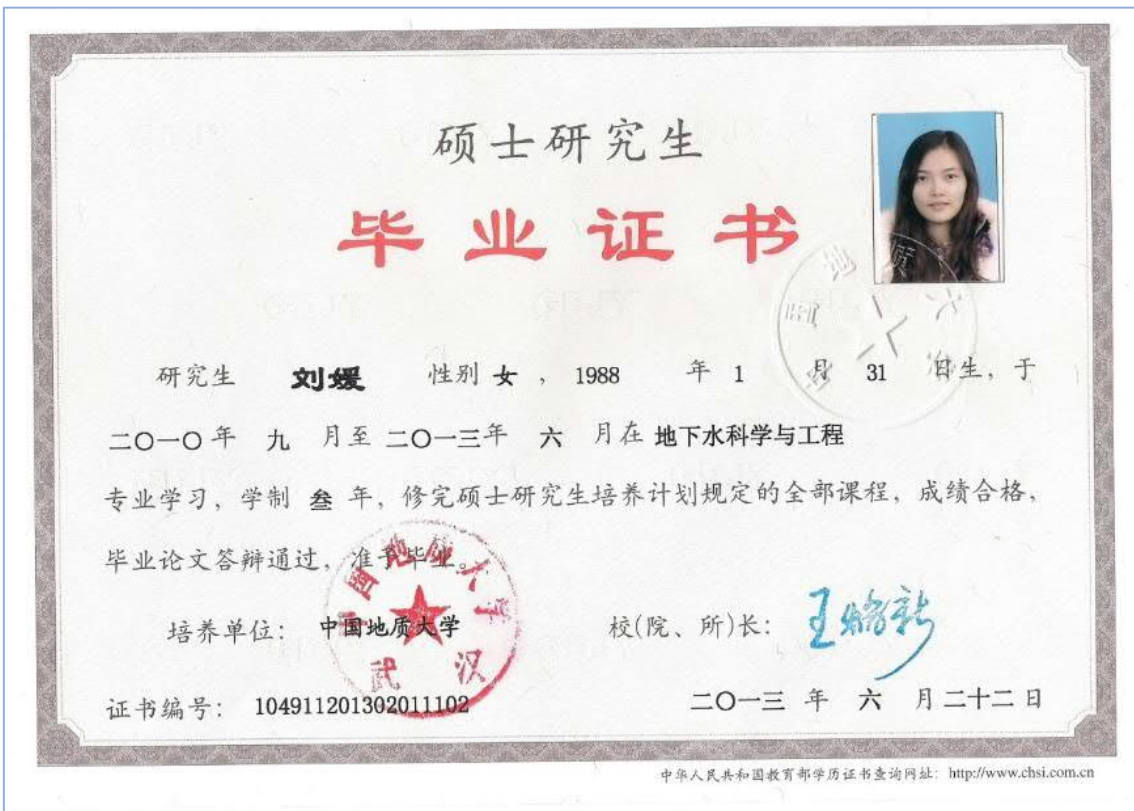 硕士研究生
毕业证书
研究生 刘媛 性别 女 ， 1988 年 1 月 31 日生，于
二〇一〇年 九 月至 二〇一三年 六 月在 地下水科学与工程
专业学习，学制 叁 年，修完硕士研究生培养计划规定的全部课程，成绩合格，
毕业论文答辩通过，准予毕业。
中国地质大学
武汉
培养单位： 中国地质大学 校(院、所)长：
证书编号： 104911201302011102 二〇一三 年 六 月二十二日
中华人民共和国教育部学历证书查询网址： http://www.chsi.com.cn